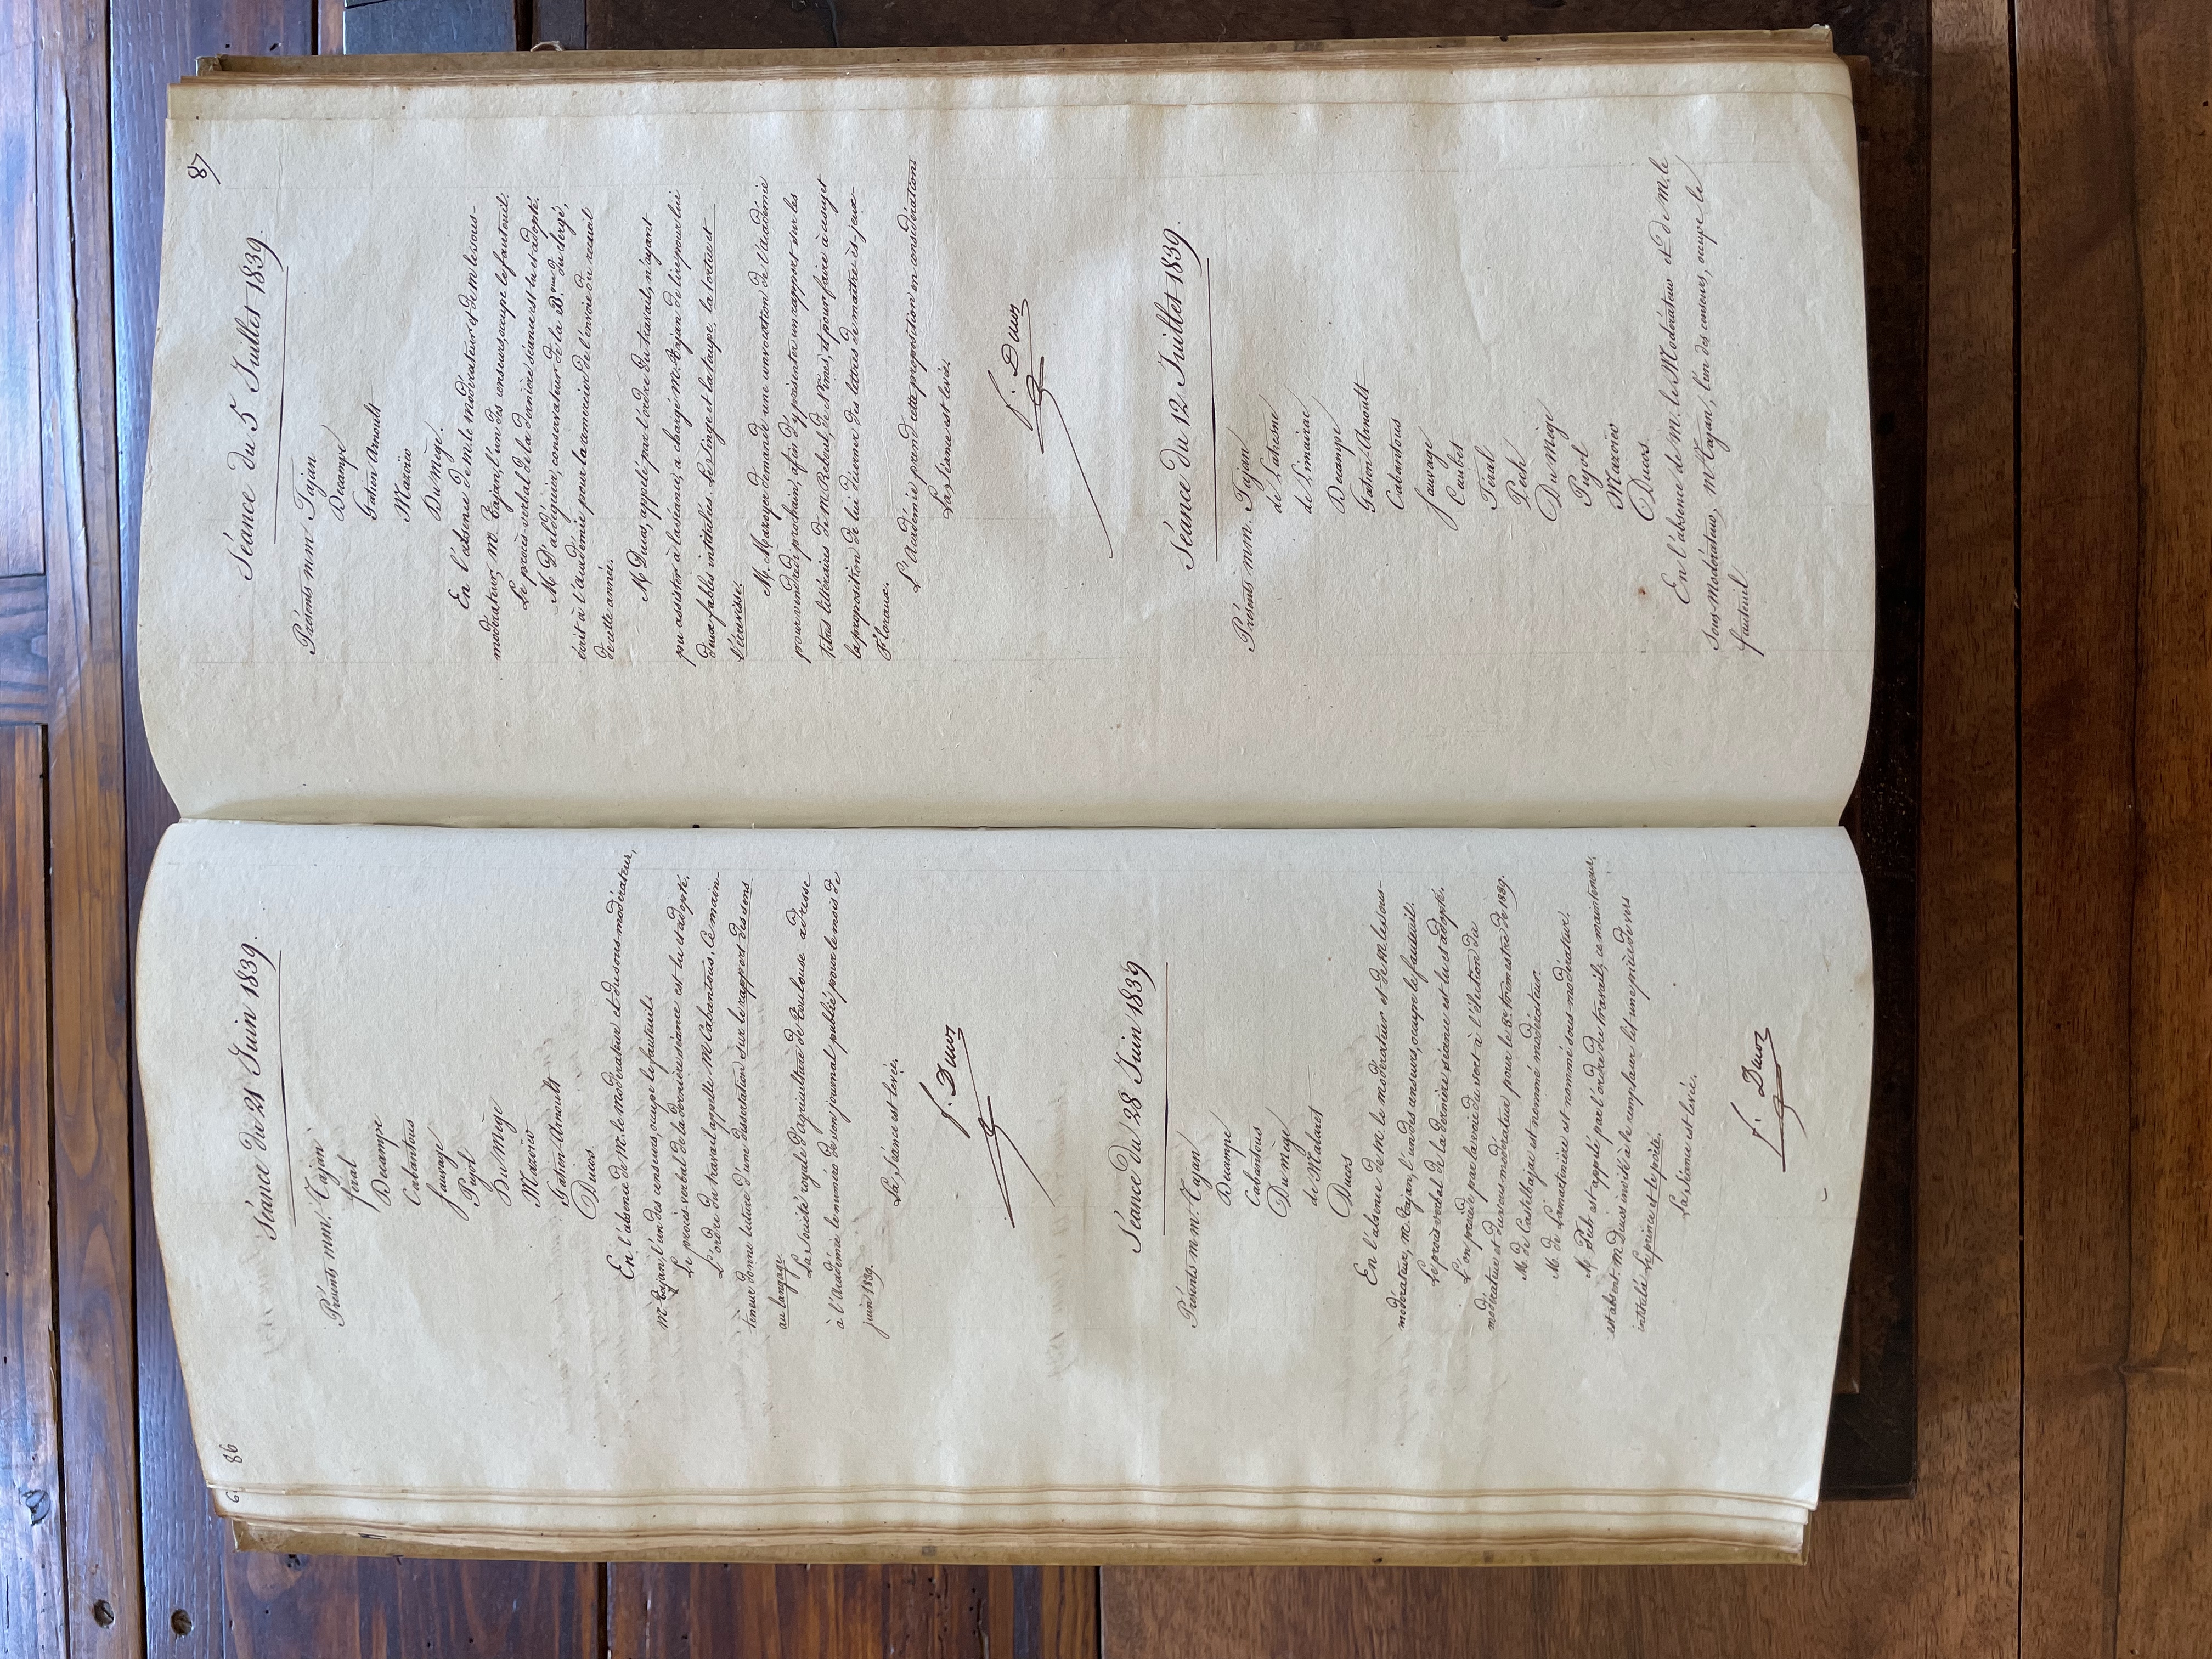 86
Séance du 21 Juin 1839.
Présents mm. Tajan
féral
Decampe
Cabantous
Sauvage
Pujol
Du Mège
Mazoïer
Gatien-Arnoult
Ducos
En l'absence de M. le modérateur et du sous-modérateur,
M. Tajan, l'un des censeurs, occupe le fauteuil.
Le procès-verbal de la dernière séance est lu et adopté.
L'ordre du travail appelle M. Cabantous. Ce main-
teneur donne lecture d'une dissertation sur le rapport des sens
au langage.
La Société royale d'agriculture de Toulouse adresse
à l'Académie le numéro de son journal publié pour le mois de
juin 1839.
La Séance est levée.
f. Ducos
Séance du 28 Juin 1839
Présents mm. Tajan
Decampe
Cabantous
Du Mège
de Malaret
Ducos
En l'absence de M. le modérateur et de M. le sous-
modérateur, M. Tajan, l'un des censeurs, occupe le fauteuil.
Le procès-verbal de la dernière séance est lu et adopté.
L'on procède par la voie du sort à l'élection du
modérateur et du sous-modérateur pour le 3e trimestre de 1839.
M. de Castelbajac est nommé modérateur.
M. de Lamartinière est nommé sous-modérateur.
M. Pech est appelé par l'ordre du travail; ce mainteneur
est absent. M. Ducos invité à le remplacer lit une pièce de vers
intitulée Le prince et le poète.
La Séance est levée.
f. Ducos
87
Séance du 5 Juillet 1839.
Présents mm Tajan
Decampe
Gatien Arnoult
Mazoïer
Du Mège.
En l'absence de M. le modérateur et de M. le sous-
modérateur, M. Tajan, l'un des censeurs, occupe le fauteuil.
Le procès-verbal de la dernière séance est lu et adopté.
M. D'aldéguier, conservateur de la Bque du clergé,
écrit à l'académie pour la remercier de l'envoi du recueil
de cette année.
M Ducos, appelé par l'ordre du travail, n'ayant
pu assister à la séance, a chargé M. Tajan de lire pour lui
deux fables intitulées. Le Singe et la taupe, la tortue et
l'écrevisse.
M. Mazoyer demande une convocation de l'académie
pour vendredi prochain, afin d'y présenter un rapport sur les
titres littéraires de M. Reboul, de Nîmes, et pour faire à ce sujet
la proposition de lui décerner des lettres de maître ès-jeux
Floraux.
L'Académie prend cette proposition en considération
La séance est levée.
f. Ducos
Séance du 12 Juillet 1839.
Présents mm. Tajan
de Latresne
de Limairac
Decampe
Gatien-Arnoult
Cabantous
Sauvage
Caubet
Féral
Pech
Du Mège
Pujol
Mazoïer
Ducos.
En l'absence de M. le Modérateur et de M. le
Sous-Modérateur, M. Tajan, l'un des censeurs, occupe le
fauteuil.